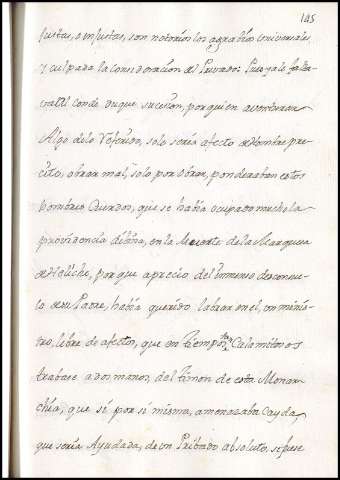 145
justas, o injustas, son notorios los agrabios universales,
y culpada la consideracion del Privado: Pues ya le falta-
ra al Conde Duque sucesion, por quien aventurar
Algo de lo Referido, solo seria afecto de Hombre pre-
cito, obrar mal, solo por obrar, ponderaban estos
hombres Cuerdos, que se havia ocupado mucho la
providencia divina, en la Muerte de la Marquesa
de Heliche, por que a precio del inmenso desconsue-
lo de su Padre, havia querido labrar en el, un minis-
tro, libre de afectos, que en tiempos tan Calamitosos
trabase a dos manos, del timon de esta Monar-
chia, que si por si misma, amenazaba Cayda,
que seria Ayudada, de un Pribado absoluto, si fuese